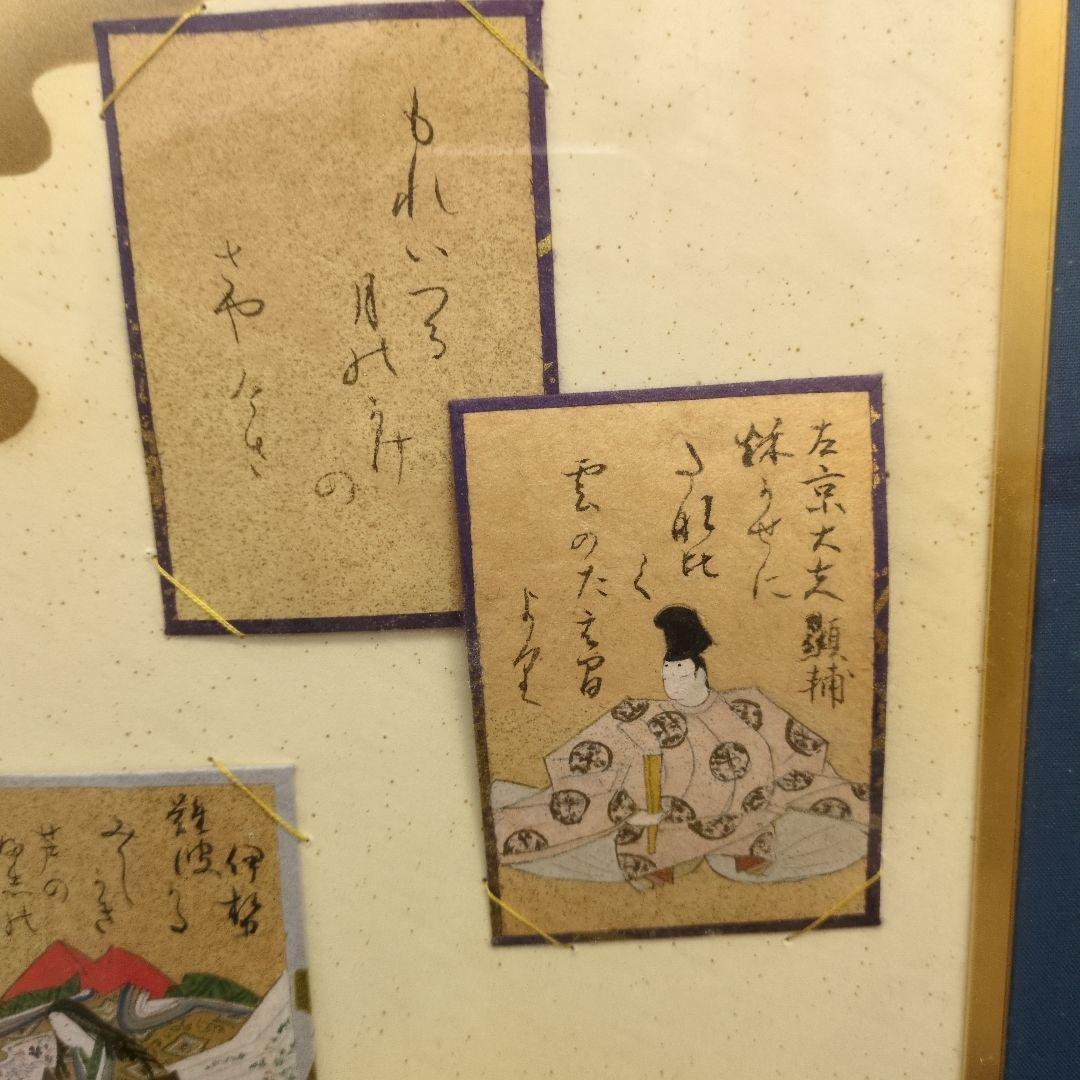 左京大夫顯輔
秋かせに
たなひ
く
雲のたえ間
より
もれいつる
月のかけ
の
さや
けさ
伊勢
難波かた
みしかき
芦の